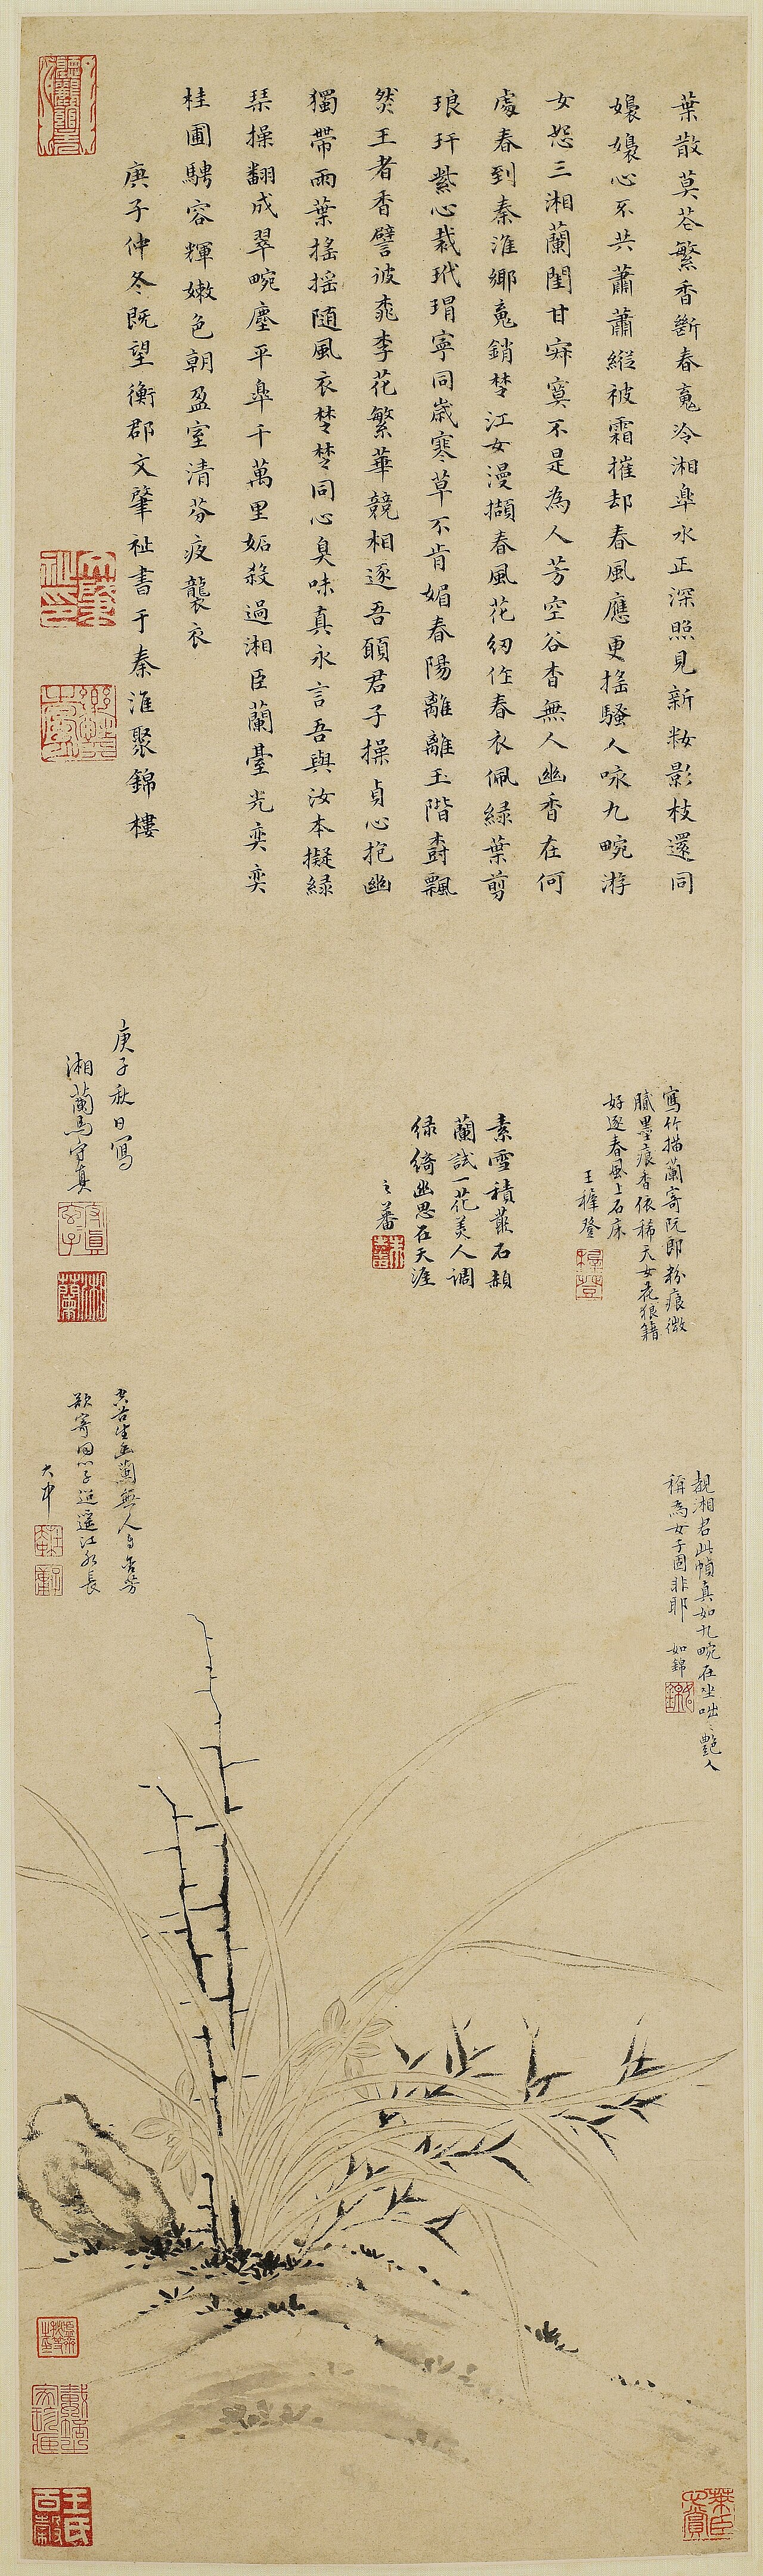 葉散莫苍繁香斷春䰟冷湘臯水正深照見新妝影枝還同
嬝嬝心不共蕭蕭縱被霜摧却春風應更搖騷人咏九畹游
女怨三湘蘭閨甘寂寞不是為人芳空谷杳無人幽香在何
處春到秦淮鄉䰟銷楚江女漫擷春風花紉作春衣佩綠葉剪
琅玕紫心裁玳瑁寧同歲寒草不肯媚春陽離離玉階樹飄
然王者香譬彼桃李花繁華競相逐吾願君子操貞心抱幽
獨帶雨葉搖搖隨風衣楚楚同心臭味真永言吾與汝本擬綠
琴操翻成翠畹塵平臯千萬里妬殺過湘臣蘭臺光奕奕
桂圃騁容輝嫩色朝盈室清芬夜襲衣
庚子仲冬既望衡郡文肇祉書于秦淮聚錦樓
寫竹描蘭寄阮郎粉痕微
膩墨痕香依稀天女花狼籍
好逐春風上石床
王穉登
素雪積叢石頳
蘭試一花美人調
綠綺幽思在天涯
之蕃
庚子秋日寫
湘蘭馬守真
覩湘君此幀真如九畹在坐咄咄艷人
稱為女子固非耶 如錦
空谷生幽蘭無人自含芳
欲寄同心子迢遙江水長
大年
王氏
百穀